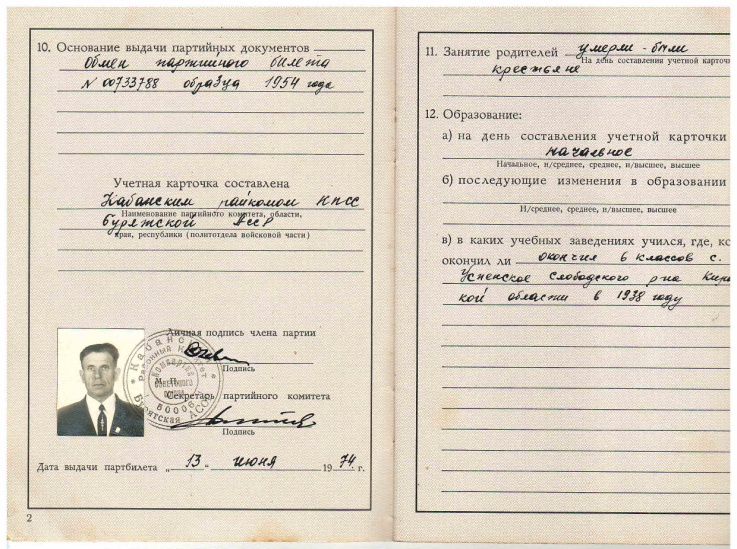 10. Основание выдачи партийных документов
Обмен партийного билета
N 00733788 образца 1954 года
Учетная карточка составлена
Кабанским райкомом КПСС
Наименование партийного комитета, области,
Бурятской АССР
края, республики (политотдела войсковой части)
Личная подпись члена партии
Подпись
М. П.
Секретарь партийного комитета
Подпись
Дата выдачи партбилета „13“ июня 1974 г.
2
11. Занятие родителей умерли - были
На день составления учетной карточки
крестьяне
12. Образование:
а) на день составления учетной карточки
начальное
Начальное, н/среднее, среднее, н/высшее, высшее
б) последующие изменения в образовании
Н/среднее, среднее, н/высшее, высшее
в) в каких учебных заведениях учился, где, ко
окончил ли окончил 6 классов с.
Успенское Слободского р-на Киро
кой области в 1938 году